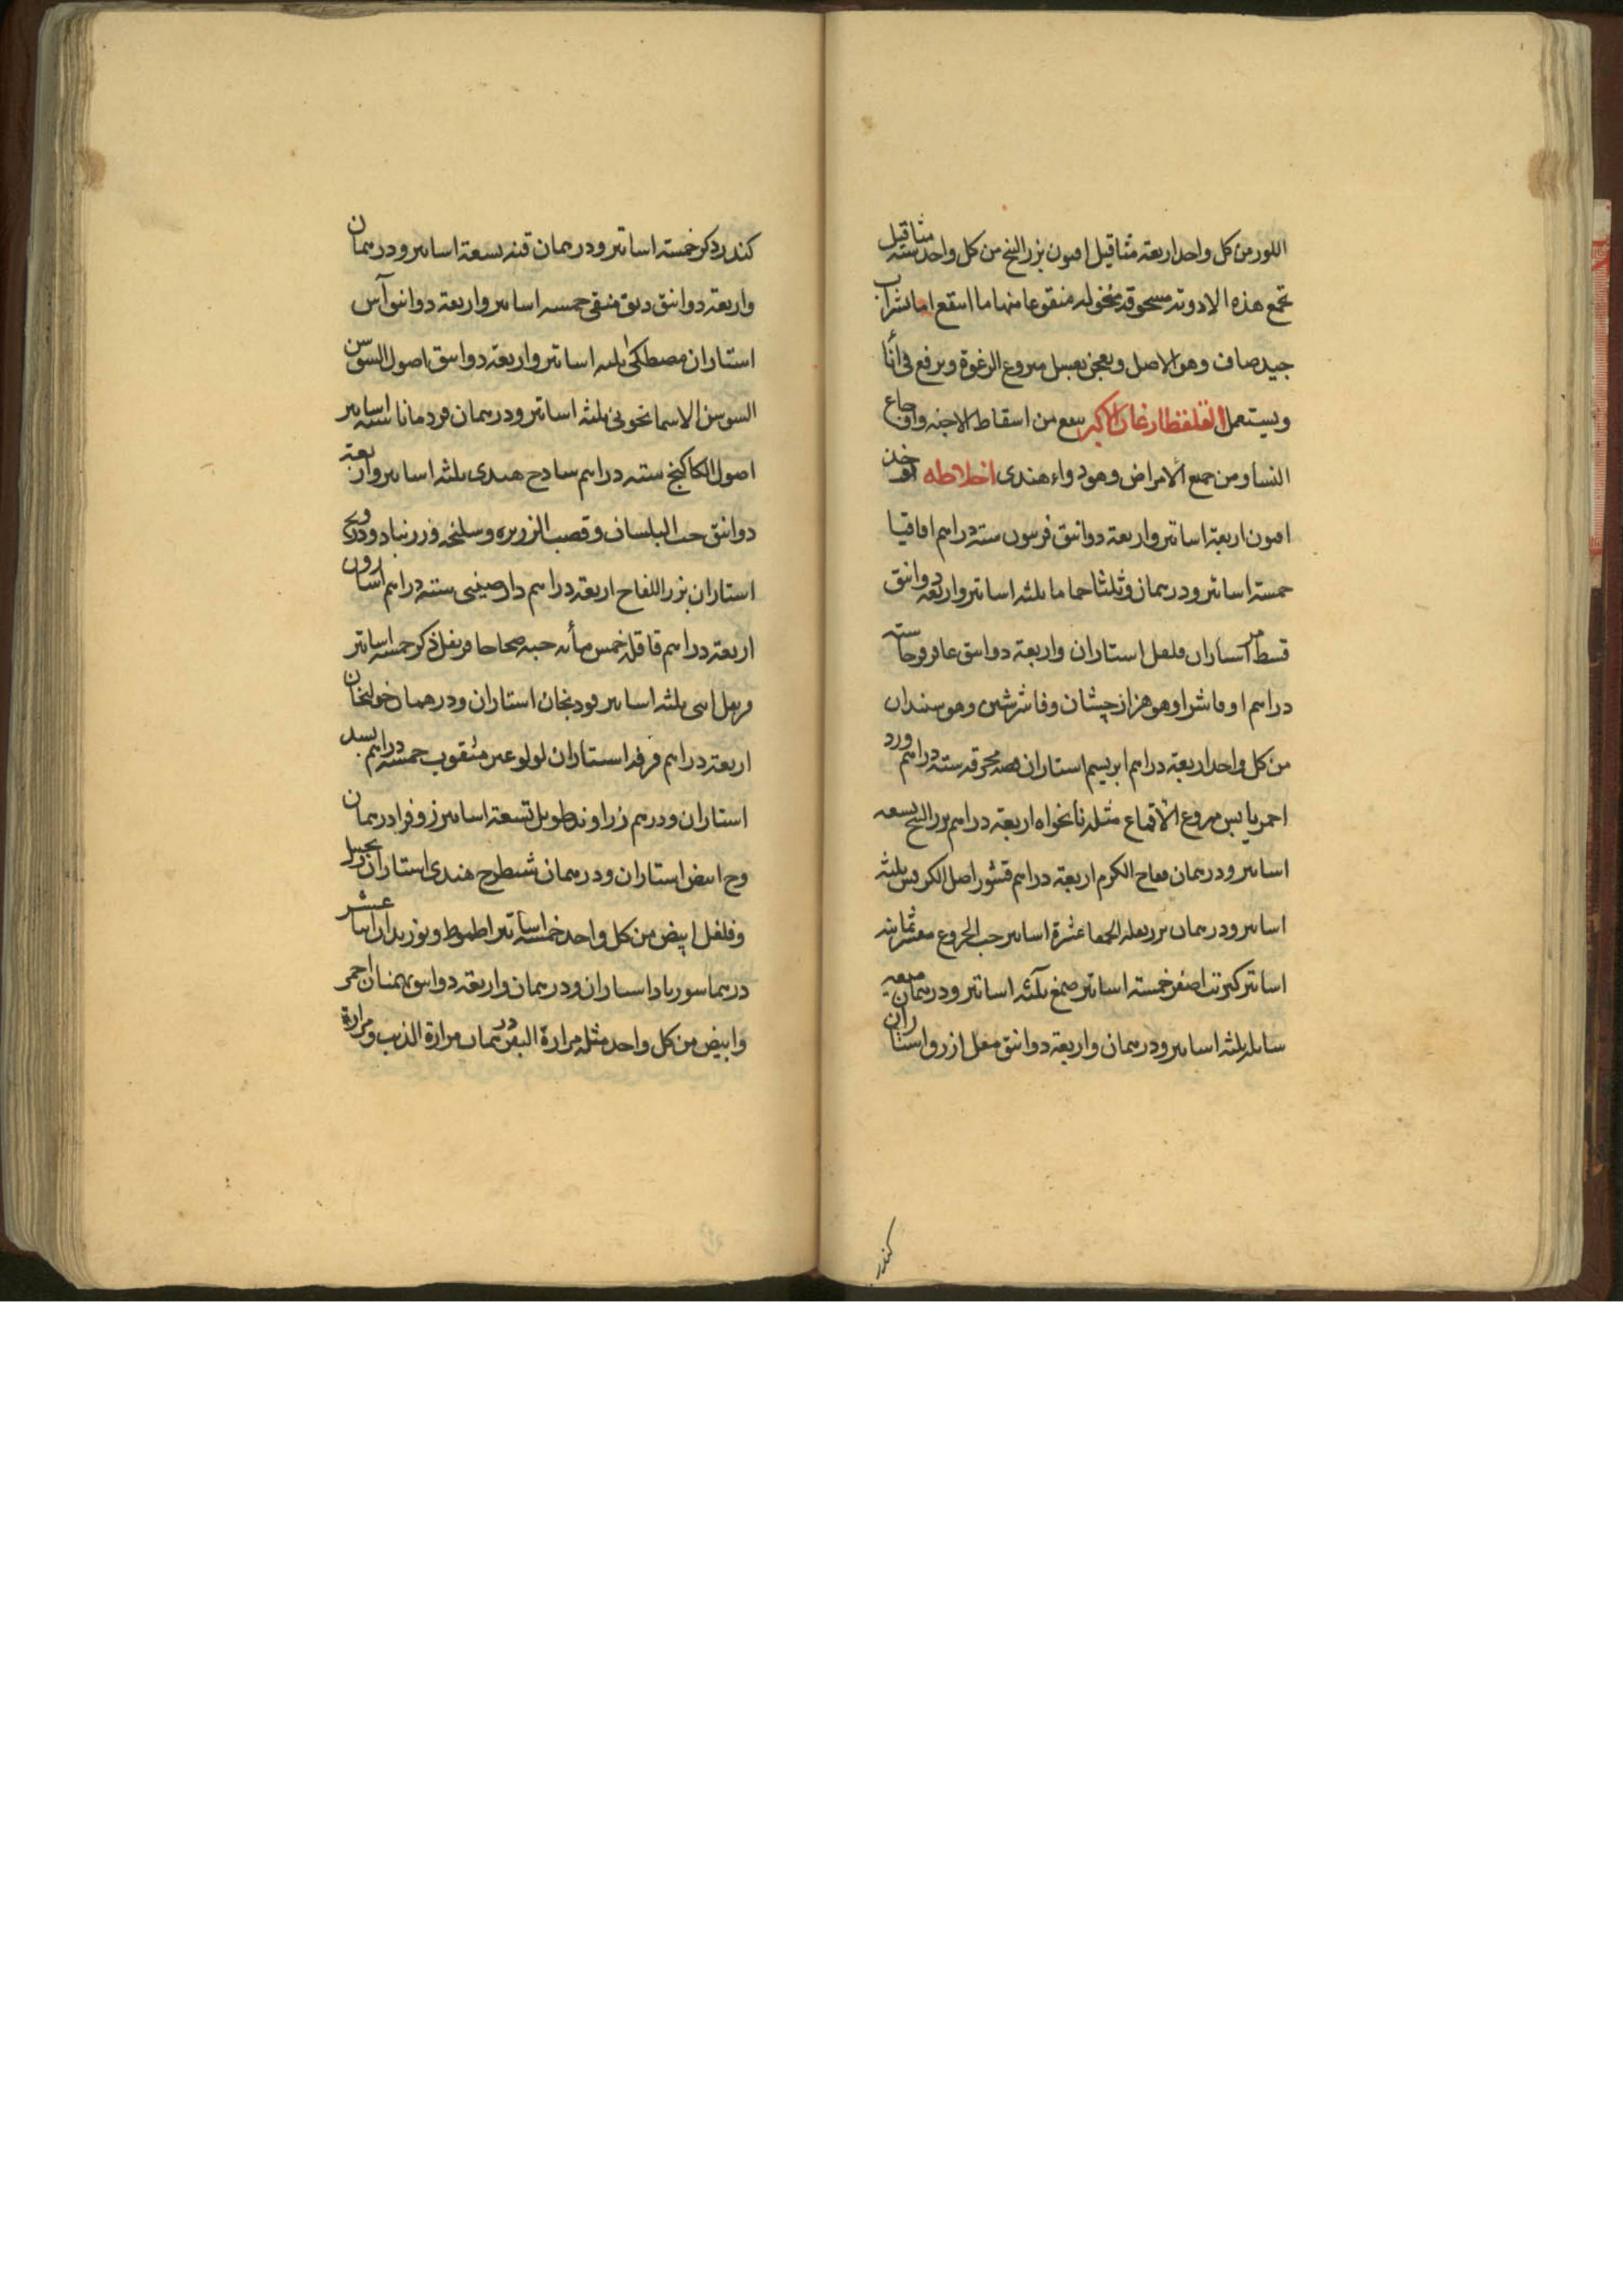 اللوز من كل واحد اربعة مثاقيل افيون بزر البنج من كل واحد ستة مثاقيل
تجمع هذه الادوية مسحوقة منخولة منقوعا منها ما انتقع بشراب
جيد صاف وهو الاصل ويعجن بعسل منزوع الرغوة ويرفع فى أنا
ويستعمل الاكبر ينفع من اسقاط الاجنة واوجاع
النسا ومن جميع الامراض وهو دواء هندى اخلاطه يؤخذ
افيون اربعة اساتير واربعة دوانيق فربيون ستة دراهم اقاقيا
خمسة اساتير ودرهمان وثلثا حماما ثلثة اساتير واربعة دوانيق
قسط مر استاران فلفل استاران واربعة دوانيق عاقرقرحا ستة
دراهم وفاشرا وهو هزارجشان وفاشرشين وهو سندان
من كل واحد اربعة دراهم ابريسم استاران فضة محرقة ستة دراهم ورد
احمر يابس منزوع الاقماع مثله نانخواه اربعة دراهم بزر البنج تسعة
اساتير ودرهمان فقاح الكرم اربعة دراهم قشور اصل الكرفس ثلثة
اساتير ودرهمان بزر بقلة الحمقا عشرة اساتير حب الخروع مقشر ثمانية
اساتير كبريت اصفر خمسة اساتير صمغ ثلثة اساتير ودرهمان ميعة
سائلة ثلثة اساتير ودرهمان واربعة دوانيق مقل ازرق استاران
كندر
كندر ذكر خمسة اساتير ودرهمان قنة تسعة اساتير ودرهمان
واربعة دوانيق دبق منقى خمسة اساتير واربعة دوانيق آس
استاران مصطكى ثلثة اساتير واربعة دوانيق اصول السوسن
السوسن الاسمانجونى ثلثة اساتير ودرهمان قردمانا ستة اساتير
اصول الكاكنج ستة دراهم سادج هندى ثلثة اساتير واربعة
دوانيق حب البلسان وقصب الذريرة وسليخة وزرنباد ودرونج
استاران بزر اللفاح اربعة دراهم دارصينى ستة دراهم اسارون
اربعة دراهم قاقلة خمس مأئة حبة صحاحا قرنفل ذكر خمسة اساتير
قرنفل انثى ثلثة اساتير فودنجان استاران ودرهمان خولنجان
اربعة دراهم قرفة استاران لولو غير مثقوب خمسة دراهم بسد
استاران ودرهم زراوند طويل تسعة اساتير زوفرا درهمان
وج ابيض استاران ودرهمان شيطرج هندى استاران زنجبيل
وفلفل ابيض من كل واحد خمسة اساتير اطموط وبوزيدان اثنا عشر
درهما سورباد استاران ودرهمان واربعة دوانيق بهمنان احمر
وابيض من كل واحد مثله مرارة البقر درهمان مرارة الذيب ومرارة